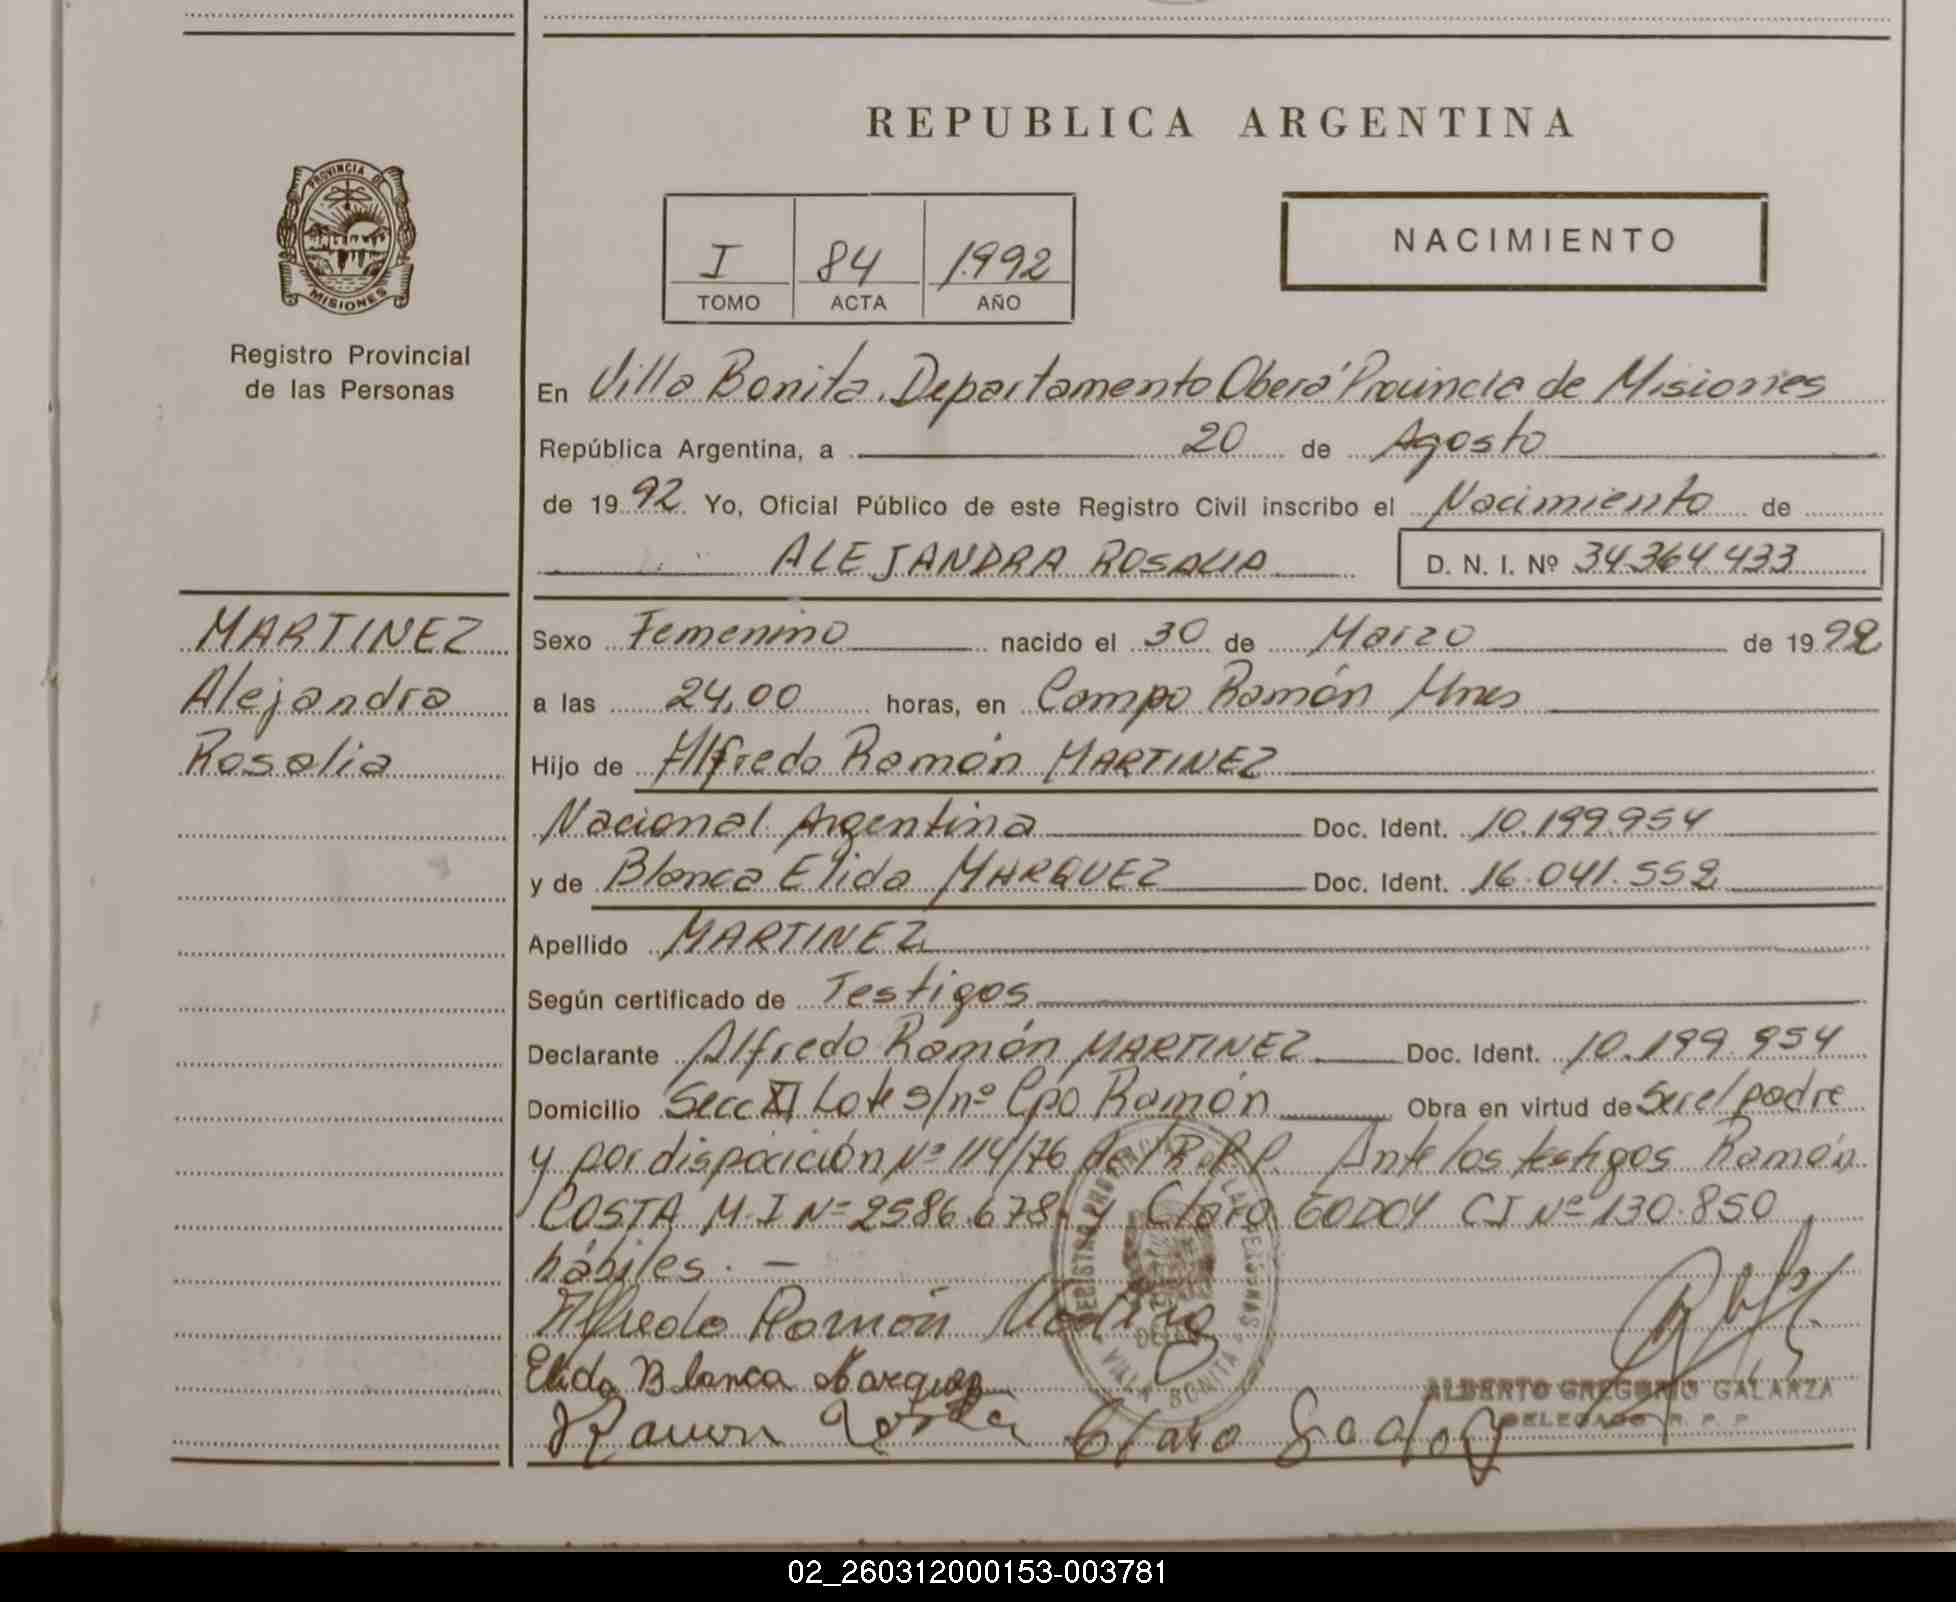 REPUBLICA ARGENTINA
PROVINCIA DE
MISIONES
Registro Provincial
de las Personas
I 84 1992
TOMO ACTA AÑO
NACIMIENTO
En Villa Bonita, Departamento Oberá Provincia de Misiones
República Argentina, a 20 de Agosto
de 1992 Yo, Oficial Público de este Registro Civil inscribo el Nacimiento de
ALEJANDRA ROSALIA D. N. I. Nº 34364433
MARTINEZ
Alejandra
Rosalia
Sexo Femenino nacido el 30 de Marzo de 1992
a las 24,00 horas, en Campo Ramón Mnes
Hijo de Alfredo Ramón MARTINEZ
Nacional Argentina Doc. Ident. 10.199.954
y de Blanca Elida MARQUEZ Doc. Ident. 16.041.552
Apellido MARTINEZ
Según certificado de Testigos
Declarante Alfredo Ramón MARTINEZ Doc. Ident. 10.199.954
Domicilio Secc XI Lote s/nº Cpo Ramón Obra en virtud de Ser el padre
y por disposición Nº 114/76 del R.P.P. Ante los testigos Ramón
COSTA M.I Nº 2586.678 y Claro GODOY CI Nº 130.850
hábiles. —
Alfredo Ramón
Elida Blanca Marquez
Ramon Costa Claro Godoy
ALBERTO GREGORIO GALARZA
DELEGADO R. P. P.
REGISTRO PROVINCIAL DE LAS PERSONAS
VILLA BONITA
02_260312000153-003781